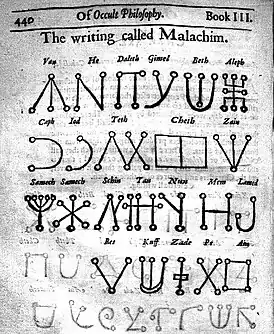 440 Of Occult Philosophy. Book III.
The writing called Malachim.
Vau He Daleth Gimel Beth Aleph
Caph Iod Teth Cheth Zain
Samech Samech Schin Tau Nun Mem Lamed
Res Kuff Zade Pe Ain